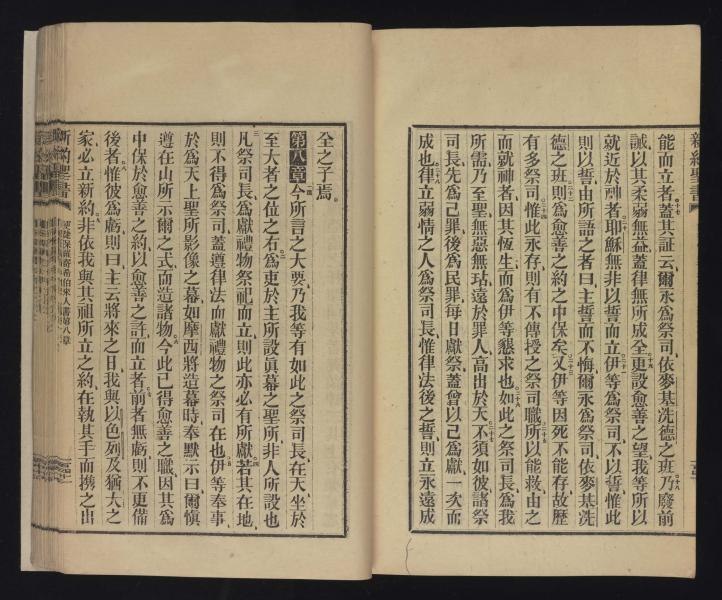 新約聖書
能而立者蓋其証云爾永爲祭司依麥基洗德之班乃廢前
誡以其柔弱無益蓋律無所成全更設愈善之望我等所以
就近於神者耶穌無非以誓而立伊等爲祭司不以誓惟此
則以誓由所語之者曰主誓而不悔爾永爲祭司依麥基洗
德之班則爲愈善之約之中保矣又伊等因死不能存故歷
有多祭司惟此永存則有不傳授之祭司職所以能救由之
而就神者因其恆生而爲伊等懇求也如此之祭司長爲我
所需乃至聖無惡無玷遠於罪人高出於天不須如彼諸祭
司長先爲己罪後爲民罪每日獻祭蓋曾以己爲獻一次而
成也律立弱情之人爲祭司長惟律法後之誓則立永遠成
全之子焉
第八章今所言之大要乃我等有如此之祭司長在天坐於
至大者之位之右爲吏於主所設眞幕之聖所非人所設也
凡祭司長爲獻禮物祭祀而立則此亦必有所獻若其在地
則不得爲祭司蓋遵律法而獻禮物之祭司在也伊等奉事
於爲天上聖所影像之幕如摩西將造幕時奉默示曰爾愼
遵在山所示爾之式而造諸物今此已得愈善之職因其爲
中保於愈善之約以愈善之許而立者前者無虧則不更備
後者惟彼爲虧則曰主云將來之日我與以色列及猶大之
家必立新約非依我與其祖所立之約在執其手而携之出
新約聖書
使徒保羅寄希伯來人書第八章